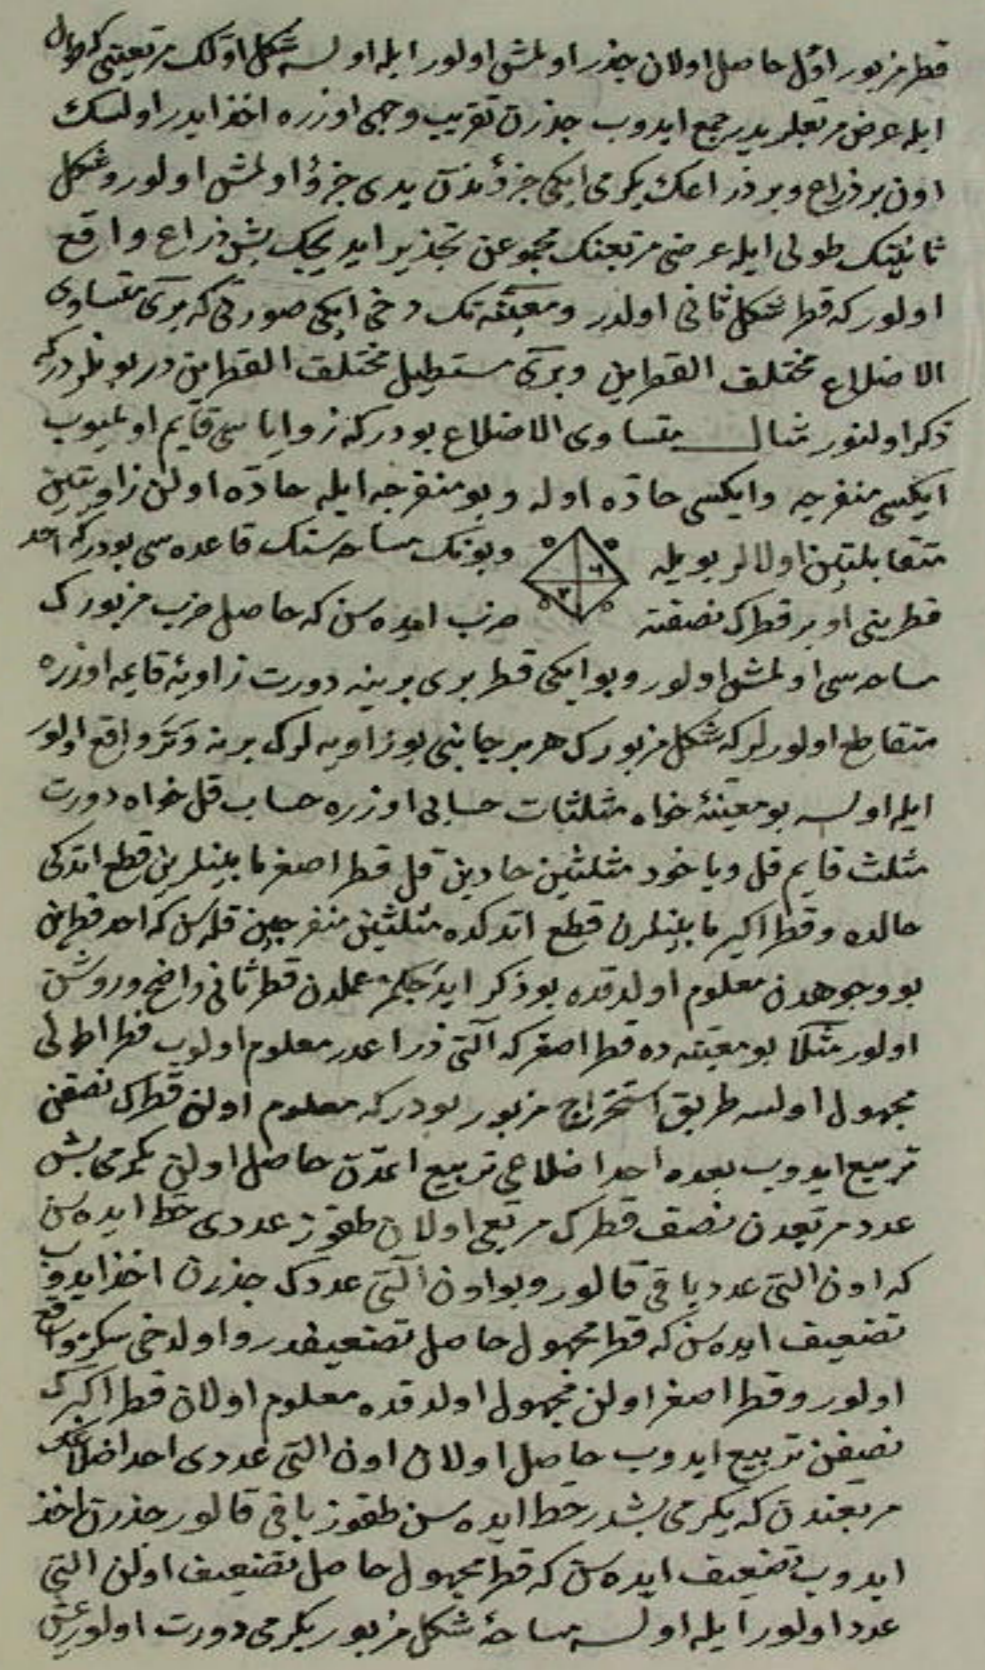 قطر مزبور اوّل حاصل اولان جذر اولمش اولور ايله اولسه شكل اوّلك مربعينى كه طول
ايله عرض مربعلريدر جمع ايدوب جذرن تقريب وجهى اوزره اخذ ايدر اولسك
اون بر ذراع و بر ذراعك يكرمى ايكى جزؤندن يدى جزؤ اولمش اولور و شكل
ثانينك طولى ايله عرضى مربعنك مجموعن تجذير ايديجك بش ذراع واقع
اولور كه قطر شكل ثانى اولدر و معيّنه نك دخى ايكى صورتى كه برى متساوى
الاضلاع مختلف القطرين و برى مستطيل مختلف القطرين در بونلر دركه
ذكر اولنور مثال متساوى الاضلاع بودركه زواياسى قايم اولميوب
ايكسى منفرجه و ايكسى حادّه اوله و بو منفرجه ايله حادّه اولن زاويتين
متقابلتين اولالر بويله ٥ ٥ ٥ ٥ ٦ ٣ و بونك مساحه سنك قاعده سى بودركه احد
قطرينى او بر قطرك نصفنه ضرب ايده سن كه حاصل ضرب مزبورك
مساحه سى اولمش اولور و بو ايكى قطر برى برينه دورت زاويهٔ قايمه اوزره
متقاطع اولورلر كه شكل مزبورك هر بر جانبى بو زاويه لرك برينه وتر واقع اولور
ايله اولسه بو معيّنهٔ خواه مثلثات حسابى اوزره حساب قل خواه دورت
مثلث قايم قل و ياخود مثلثين حادين قل قطر اصغر مابينلرين قطع اتدكى
حالده و قطر اكبر مابينلرن قطع اتدكده مثلثين منفرجين قله سن كه احد قطرين
بو وجوهدن معلوم اولدقده بو ذكر ايدجكم عملدن قطر ثانى واضح و روشن
اولور مثلا بو معيّنه ده قطر اصغر كه آلتى ذراعدر معلوم اولوب قطر اطولى
مجهول اولسه طريق استخراج مزبور بودركه معلوم اولن قطرك نصفن
تربيع ايدوب بعده احد اضلاعى تربيع اتمدن حاصل اولن يكرمى بش
عدد مربعدن نصف قطرك مربعى اولان طقوز عددى حط ايده سن
كه اون التى عدد باقى قالور و بو اون آلتى عددك جذرن اخذ ايدوب
تضعيف ايده سن كه قطر مجهول حاصل تضعيفدر و اولدخى سكز واقع
اولور و قطر اصغر اولن مجهول اولدقده معلوم اولان قطر اكبرك
نصفن تربيع ايدوب حاصل اولان اون التى عددى احد اضلاعك
مربعندن كه يكرمى بشدر حط ايده سن طقوز باقى قالور جذرن اخذ
ايدوب تضعيف ايده سن كه قطر مجهول حاصل تضعيف اولن التى
عدد اولور ايله اولسه مساحهٔ شكل مزبور يكرمى دورت اولور